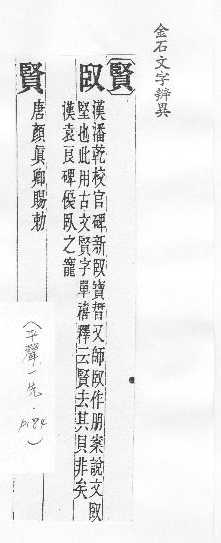 金石文字辨異
賢
臤
漢潘乾校官碑親臤寶智又師臤作朋案說文臤
堅也此用古文賢字單禧釋云賢去其貝非矣
漢袁良碑優臤之寵
賢
唐顏眞卿賜勅
(平聲一先．p184)